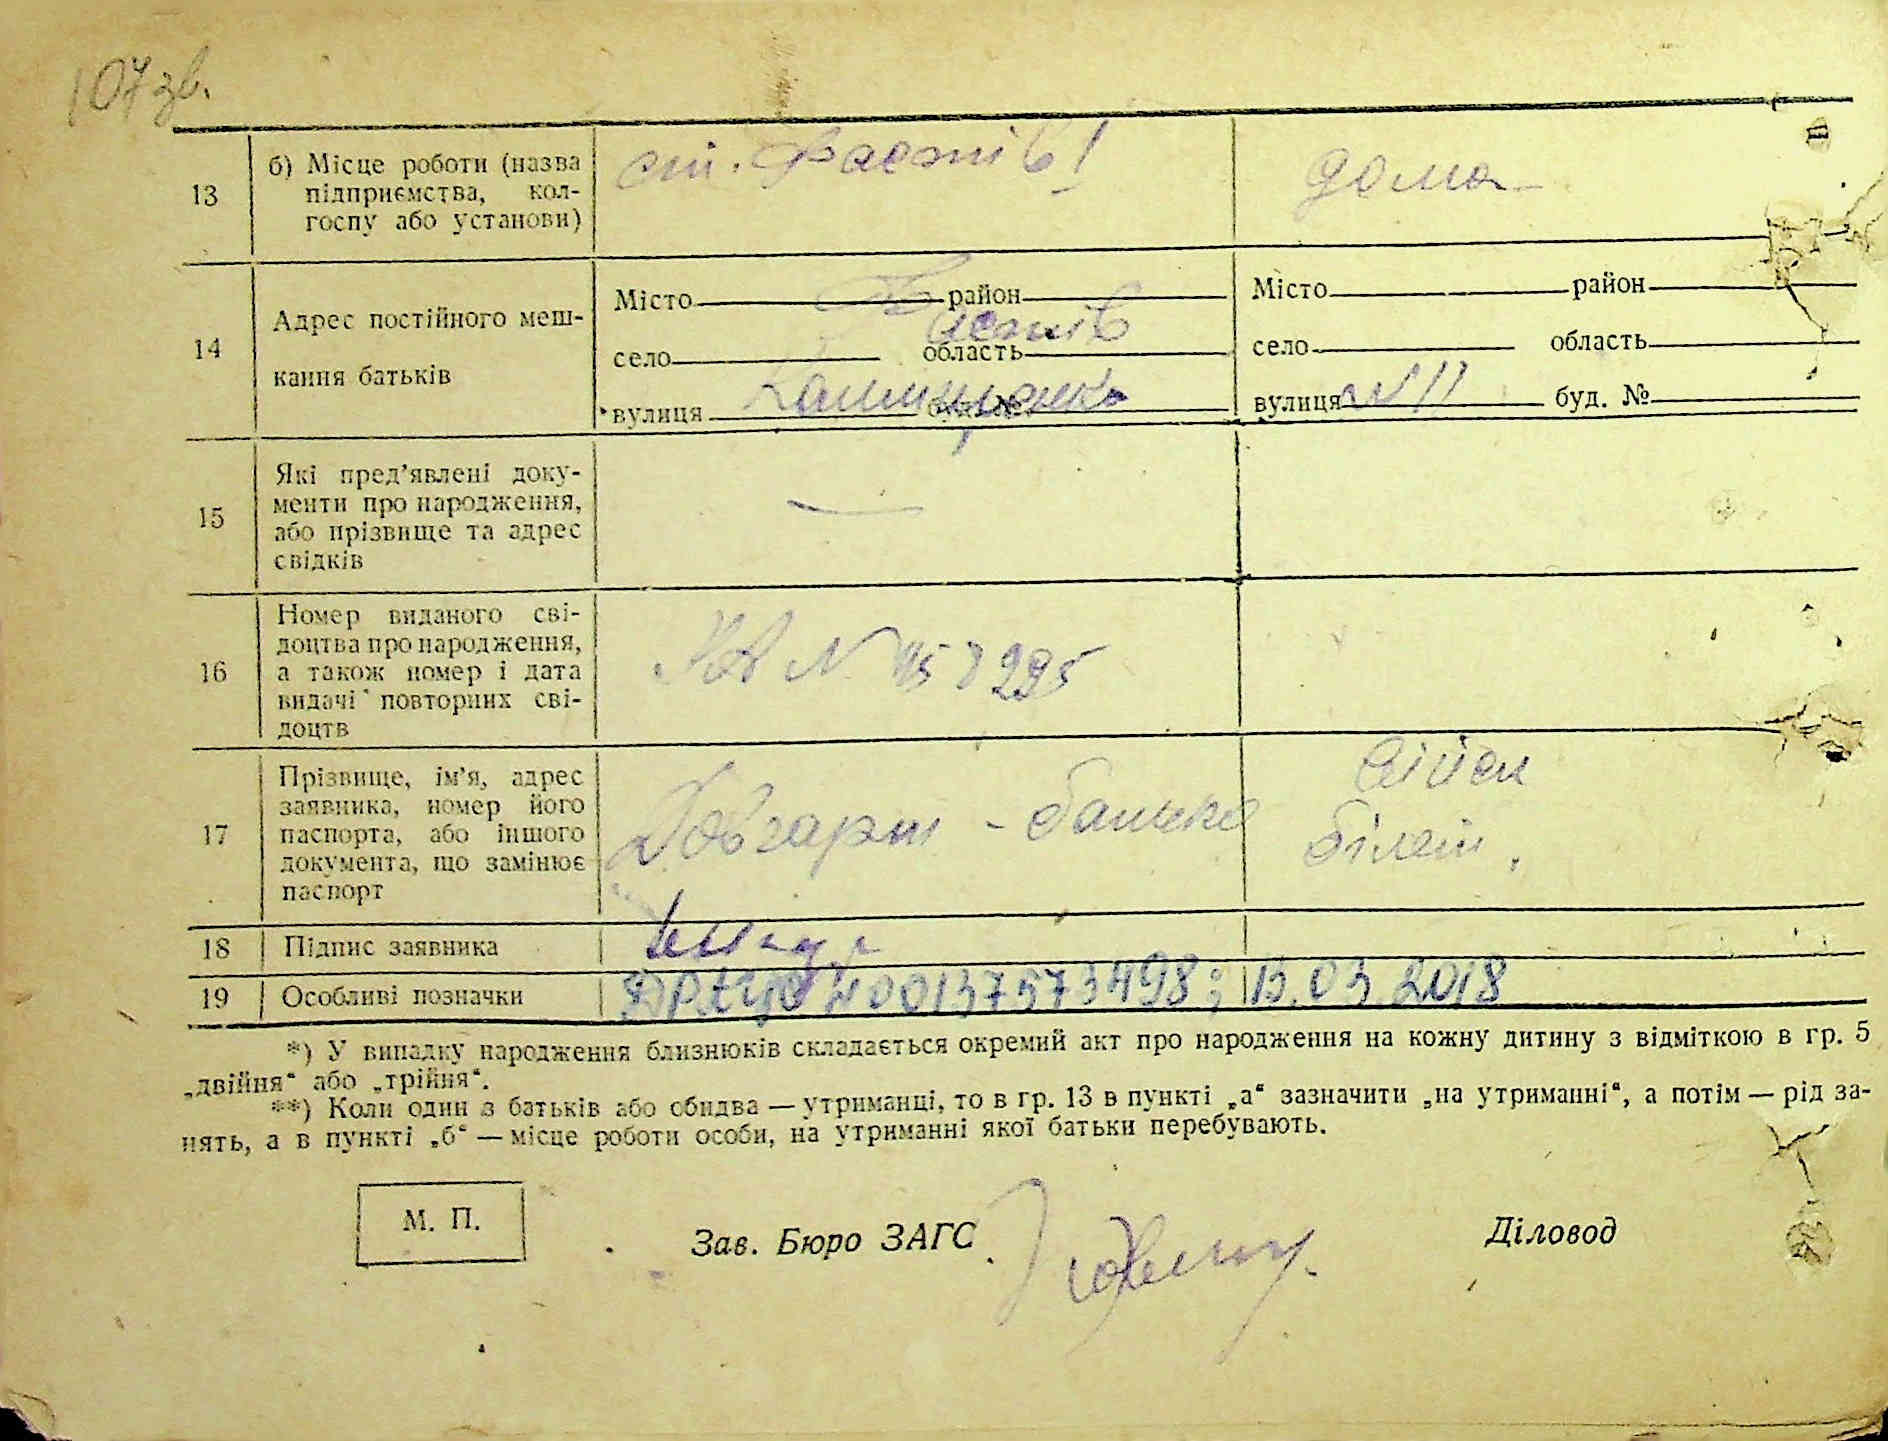 107 зв.
13
б) Місце роботи (назва
підприємства, кол-
госпу або установи)
ст. Фастів I
дома
14
Адрес постійного меш-
кання батьків
Місто район
Фастів
село область
вулиця буд. №
Місто район
село область
вулиця N 11 буд. №
15
Які пред'явлені доку-
менти про народження,
або прізвище та адрес
свідків
—
16
Номер виданого сві-
доцтва про народження,
а також номер і дата
видачі повторних сві-
доцтв
N
17
Прізвище, ім'я, адрес
заявника, номер його
паспорта, або іншого
документа, що замінює
паспорт
Довгарт - батько
війск
білет.
18
Підпис заявника
19
Особливі позначки
ДРАЦС 400137573498; 13.03.2018
*) У випадку народження близнюків складається окремий акт про народження на кожну дитину з відміткою в гр. 5
„двійня“ або „трійня“.
**) Коли один з батьків або обидва — утриманці, то в гр. 13 в пункті „а“ зазначити „на утриманні“, а потім — рід за-
нять, а в пункті „б“ — місце роботи особи, на утриманні якої батьки перебувають.
М. П.
Зав. Бюро ЗАГС
Діловод